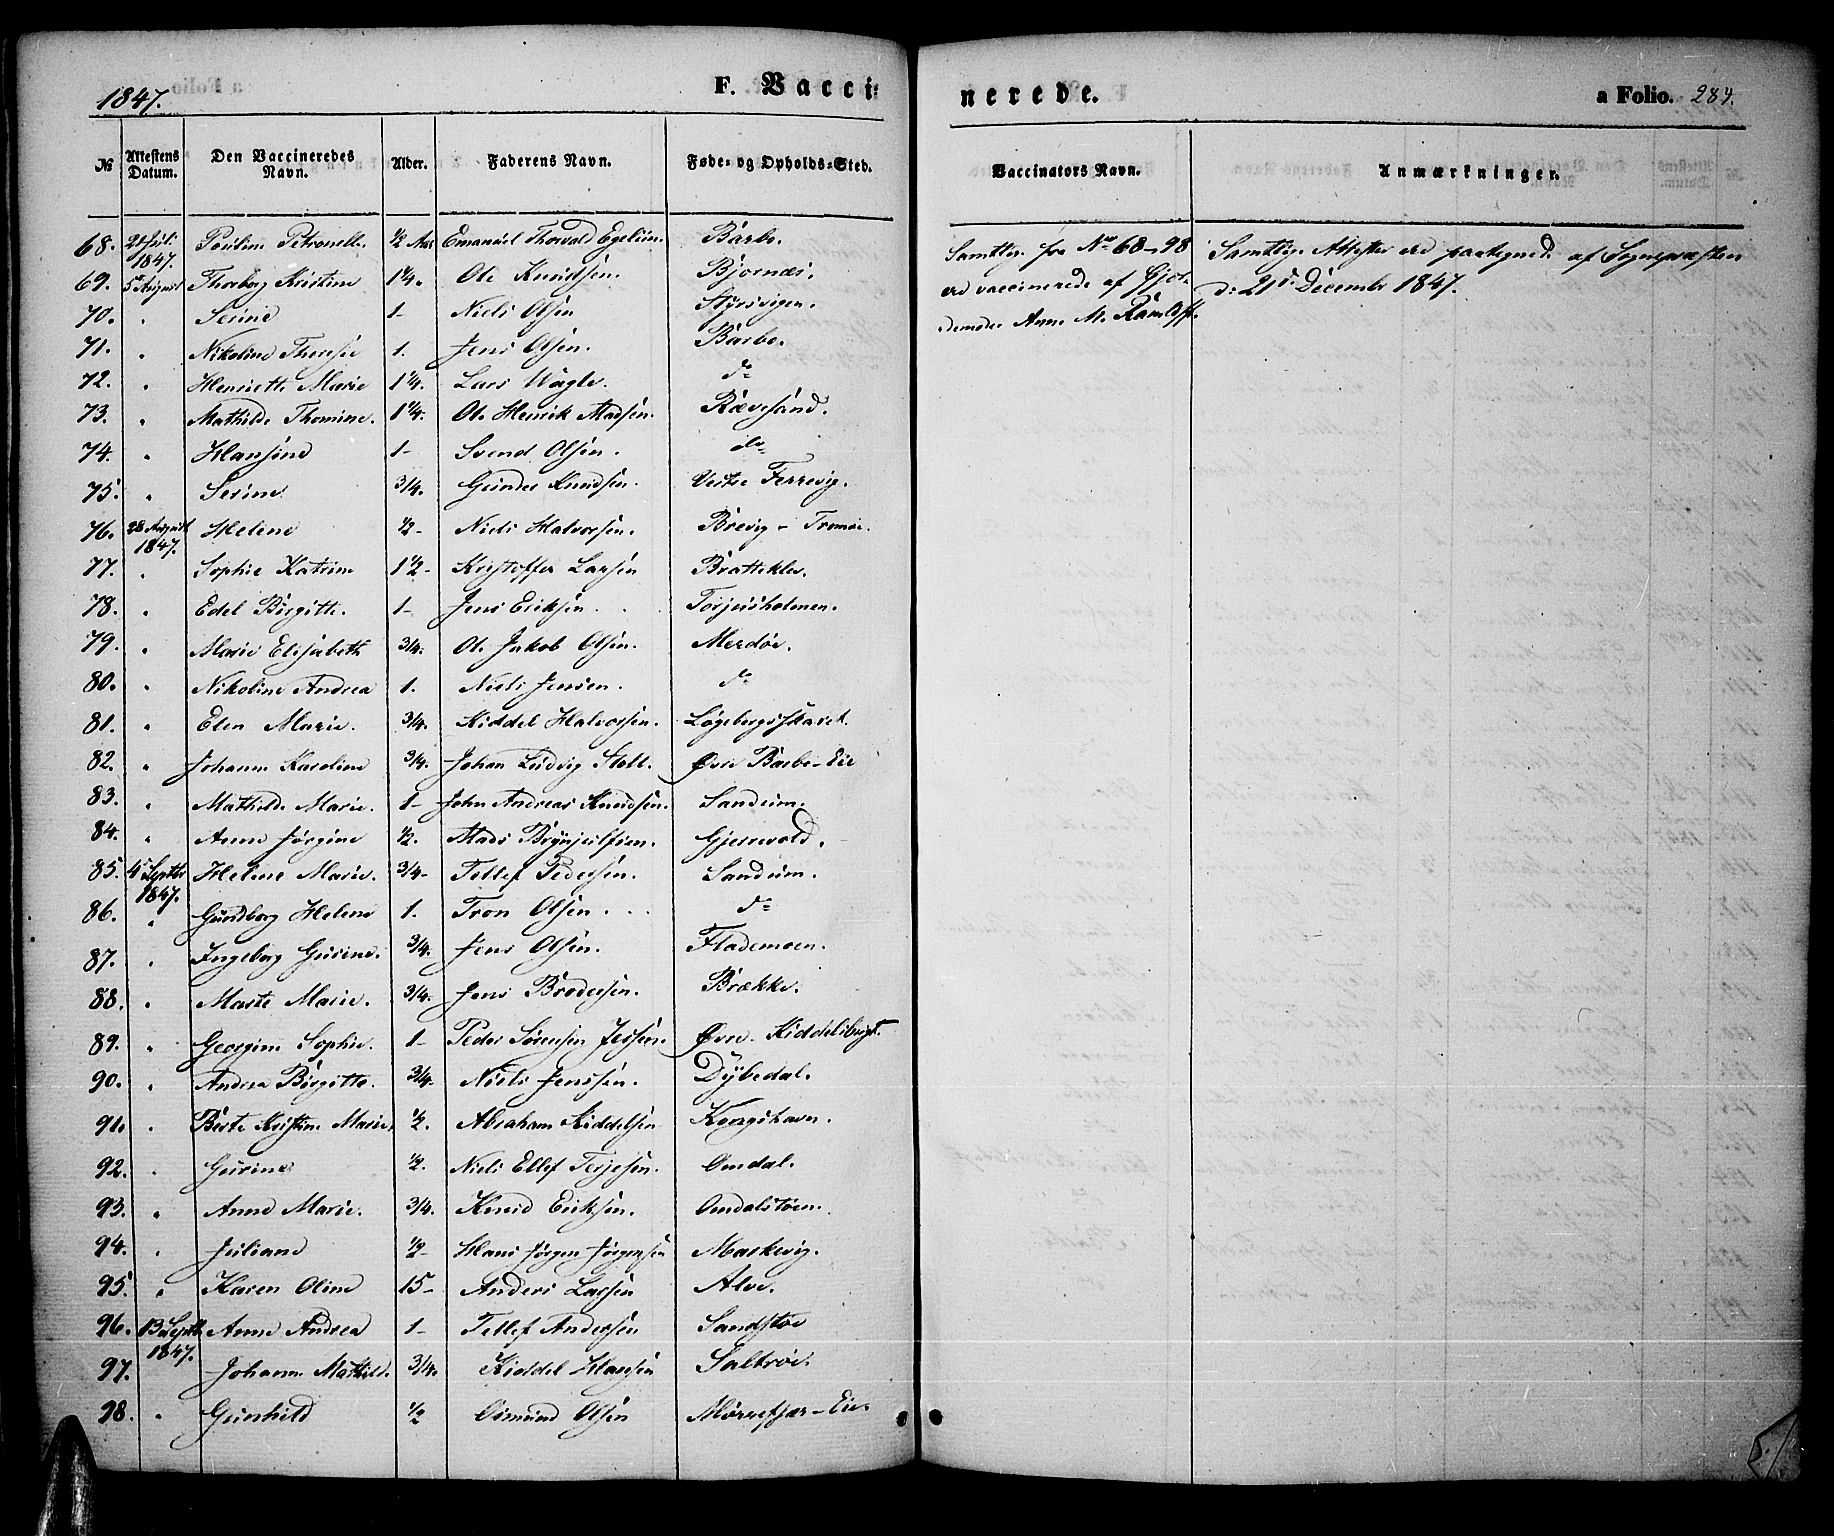 1847.
F. Vacci-
nerede.
a Folio. 284.
№ Attestens Datum. Den Vaccineredes Navn. Alder. Faderens Navn. Føde- og Opholds-Sted. Vaccinators Navn. Anmærkninger.
68. 1847. Pouline Petronelle ½ Aar Emanuel Thorvald Egelien. Barbo.
69. 5 August Thorborg Kristine 1¼. Ole Knudsen. Bjornæs.
70. " Serine 1- Niels Olsen Styrsvigen.
71. " Nikoline Therese 1. Jens Olsen. Barbo.
72. " Henriette Marie 1¼. Lars Wågle. do
73. " Mathilde Thomine. 1¼. Ole Henrik Madsen. Rævesand.
74. " Hansine 1- Svend Olsen. do
75. " Serine ¾. Gunder Knudsen. Vestre Ferrevig.
76. 28 August 1847. Helene ½- Niels Halvorsen. Brevig - Tromøe.
77. " Sophie Katrine 1½- Kristoffer Larsen Bratteklev.
78. " Edel Birgitte. 1- Jens Eriksen. Torjusholmen.
79. " Marie Elisabeth ¾. Ole Jakob Olsen. Merdøe.
80. " Nikoline Andrea 1. Niels Jensen. do
81. " Elen Marie. ¾. Kiddel Halvorsen. Løgebergsskaret.
82. " Johanne Karoline ¾. Johan Ludvig Stoll. Øvre Barbo-Eie
83. " Mathilde Marie. 1- John Andreas Knudsen. Sandum.
84. " Anne Jørgine ½. Mads Brynjulfsen. Gjerrevold.
85. 4 Septbr 1847. Helene Marie. ¾- Tellef Pedersen. Sandum.
86. " Gundborg Helene 1. Tron Olsen. do
87. " Ingeborg Gurine. ¾. Jens Olsen. Flademoen.
88. " Marte Marie. ¾. Jens Brodersen. Brække.
89. " Georgine Sophie. 1- Peder Sørensen Jessen. Øvre Kiddelsbugt.
90. " Andrea Birgitte. ¾. Niels Jenssen. Dybedal.
91. " Berte Kristine Marie ½. Abraham Kiddelsen Kongshavn.
92. " Gurine ½. Niels Ellef Terjesen. Omdal.
93. " Anne Marie. ¾. Knud Eriksen. Omdalstøen.
94. " Juliane ½- Hans Jørgen Jørgensen Maskevig.
95. " Karen Oline 15- Anders Larsen Alve.
96. 13 Septb. 1847. Anne Andrea 1- Tellef Andersen Sandstøe
97. Johanne Mathilde. ¾. Kiddel Hansen Saltrøe.
98. " Gunhild ½ Osmund Olsen Mørrefjær-Eie.
Samtlige fra No 68-98
ere vaccinerede af Gjor-
demoder Anne M.
Samtlige Attester ere paategnede af Sognepræsten
d: 21de December 1847.